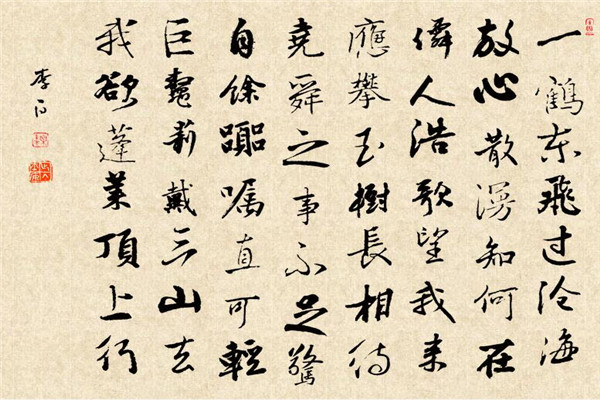 一鶴东飛过沧海
放心散漫知何在
僊人浩歌望我来
應攀玉樹長相待
堯舜之事不足驚
自餘直可輕
巨鼇莉戴三山去
我欲蓬莱頂上行
李白